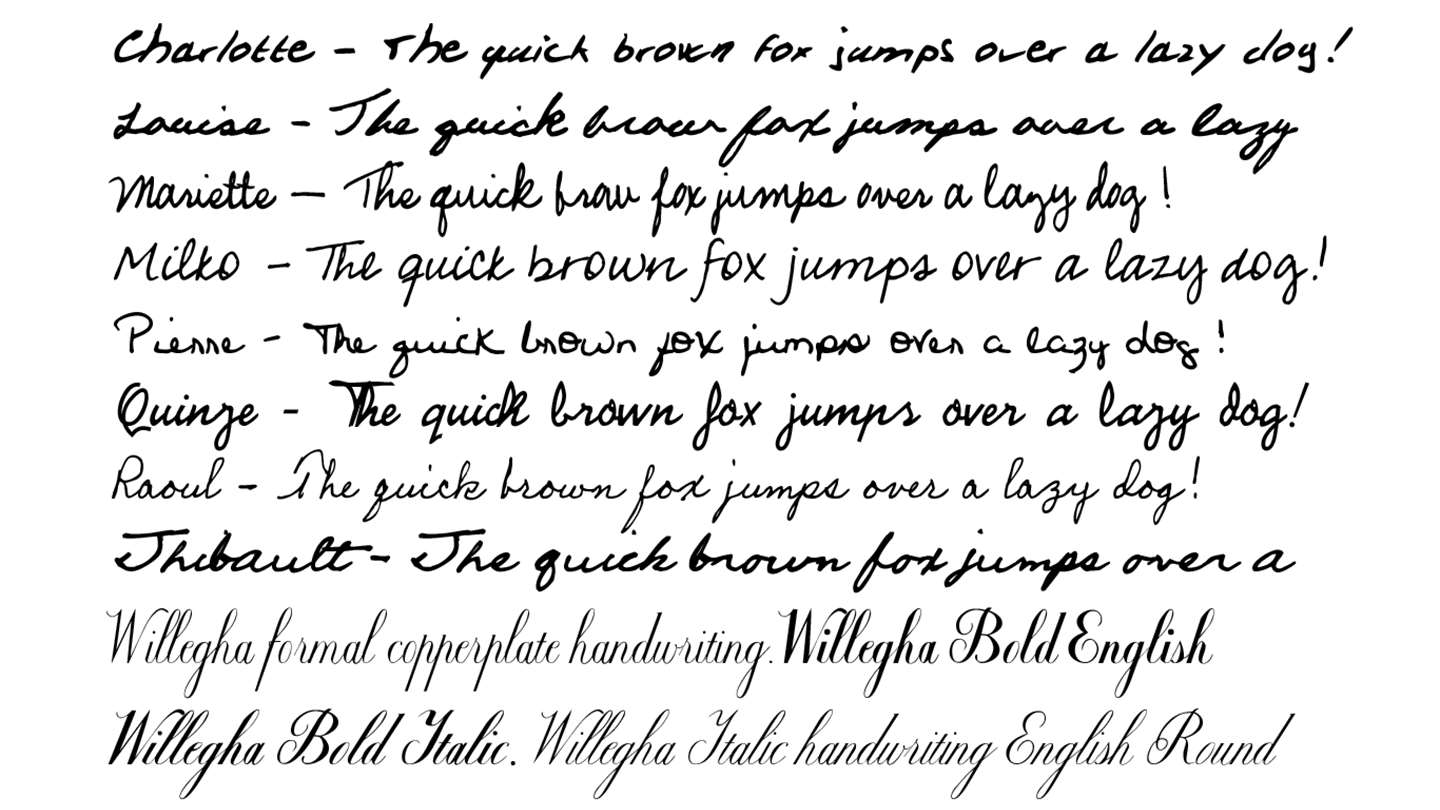 Charlotte - The quick brown fox jumps over a lazy dog!
Louise - The quick brown fox jumps over a lazy
Mariette – The quick brown fox jumps over a lazy dog !
Milko - The quick brown fox jumps over a lazy dog!
Pierre - The quick brown fox jumps over a lazy dog !
Quinze - The quick brown fox jumps over a lazy dog!
Raoul - The quick brown fox jumps over a lazy dog!
Thibault - The quick brown fox jumps over a
Willegha formal copperplate handwriting. Willegha Bold English
Willegha Bold Italic. Willegha Italic handwriting English Round